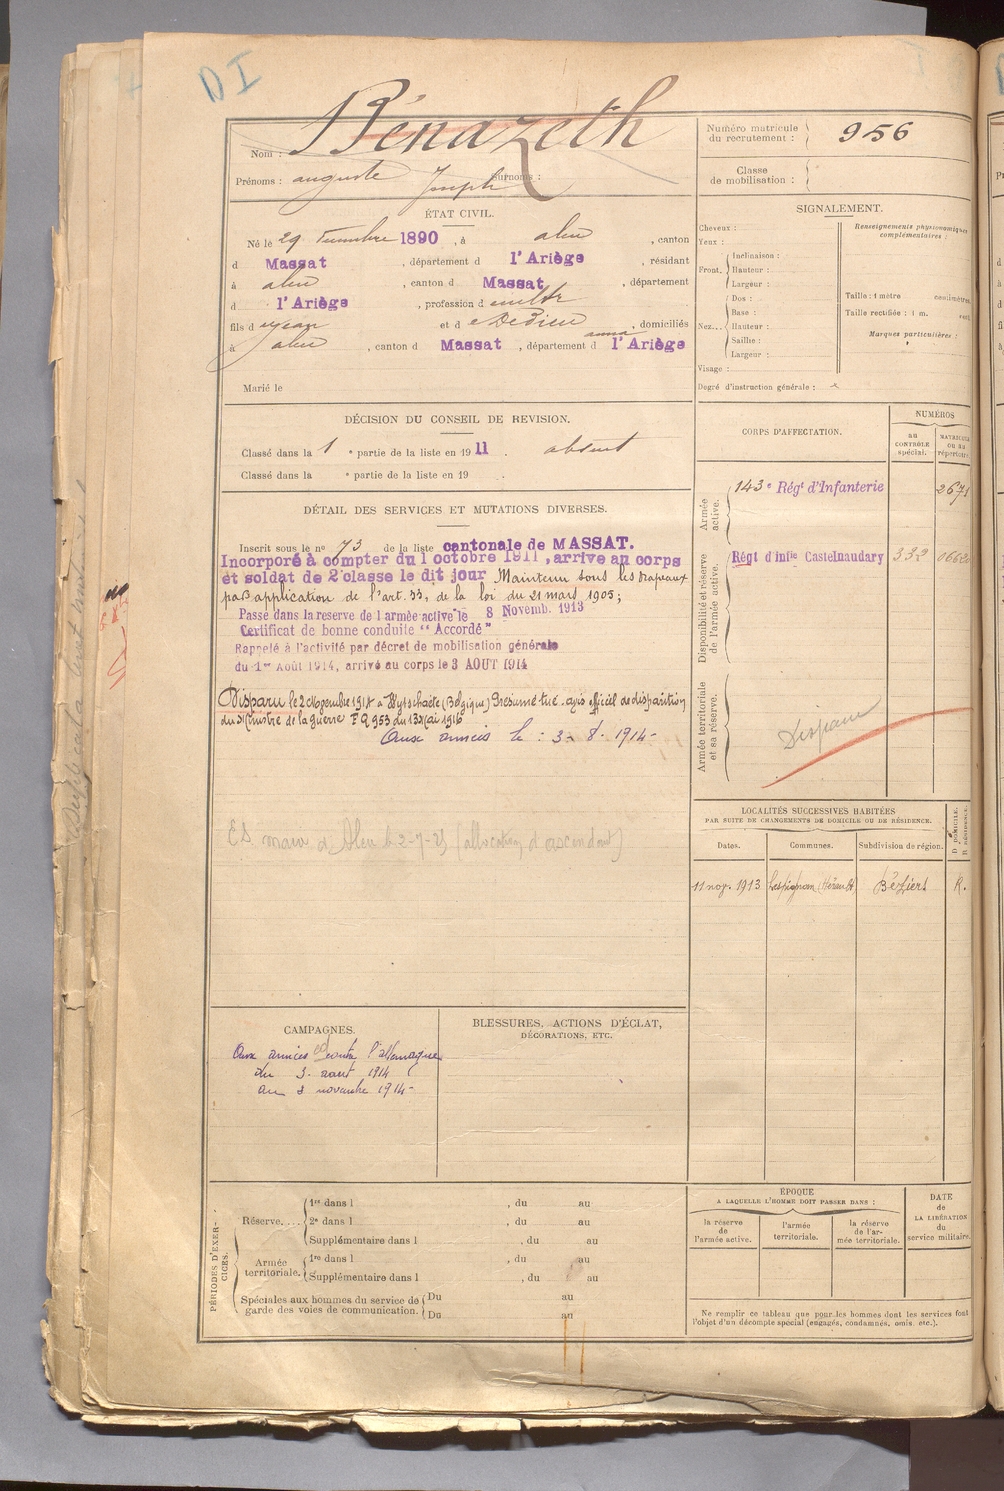 D I
Nom : Bénazeth
Prénoms : auguste Joseph Surnoms :
Numéro matricule du recrutement : 956
Classe de mobilisation :
ÉTAT CIVIL.
Né le 29 1890, à aleu, canton
d Massat, département d l'Ariège, résidant
à aleu, canton d Massat, département
d l'Ariège, profession d cultr
fils d jean et d Dedieu anna, domiciliés
à aleu, canton d Massat, département d l'Ariège
Marié le
SIGNALEMENT.
Cheveux :
Yeux :
Front. Inclinaison :
Hauteur :
Largeur :
Nez... Dos :
Base :
Hauteur :
Saillie :
Largeur :
Visage :
Renseignements physionomiques complémentaires :
Taille : 1 mètre centimètres.
Taille rectifiée : 1 m.
Marques particulières :
Degré d'instruction générale :
DÉCISION DU CONSEIL DE REVISION.
Classé dans la 1e partie de la liste en 1911. absent
Classé dans la e partie de la liste en 19 .
DÉTAIL DES SERVICES ET MUTATIONS DIVERSES.
Inscrit sous le no 73 de la liste cantonale de MASSAT.
Incorporé à compter du 1 octobre 1911, arrive au corps
et soldat de 2e classe le dit jour Maintenu sous les drapeaux
par application de l'art. 33, de la loi du 21 mars 1905;
Passé dans la reserve de l armée active le 8 Novemb. 1913
Certificat de bonne conduite "Accordé"
Rappelé à l'activité par décret de mobilisation générale
du 1er Août 1914, arrivé au corps le 3 AOUT 1914
Disparu le 2 Novembre 1914 à Wytschaete (Belgique) Présumé tué. avis officiel de disparition
du Ministre de la guerre F Q 953 du 13 Mai 1916
Aux armées le : 3- 8- 1914-
maire d'Aleu le 2-7-21 (allocation d'ascendant)
CORPS D'AFFECTATION.
NUMÉROS
au contrôle spécial.
matricule ou au répertoire.
Armée active.
143e Régt d'Infanterie 2671
Disponibilité et réserve de l'armée active.
Régt d'infie Castelnaudary 332
Armée territoriale et sa réserve.
Disparu
LOCALITÉS SUCCESSIVES HABITÉES
PAR SUITE DE CHANGEMENTS DE DOMICILE OU DE RÉSIDENCE.
Dates. Communes. Subdivision de région. D. DOMICILE. R. RÉSIDENCE.
11 nov. 1913 Lespignan (Hérault) Béziers R.
CAMPAGNES.
Aux armées contre l'allemagne
du 3 aout 1914
au 2 novembre 1914-
BLESSURES, ACTIONS D'ÉCLAT,
DÉCORATIONS, ETC.
PÉRIODES D'EXERCICES.
Réserve.... 1re dans l , du au
2e dans l , du au
Supplémentaire dans l , du au
Armée territoriale. 1re dans l , du au
Supplémentaire dans l , du au
Spéciales aux hommes du service de garde des voies de communication. Du au
Du au
ÉPOQUE
A LAQUELLE L'HOMME DOIT PASSER DANS :
la réserve de l'armée active.
l'armée territoriale.
la réserve de l'armée territoriale.
DATE de LA LIBÉRATION du service militaire.
Ne remplir ce tableau que pour les hommes dont les services font
l'objet d'un décompte spécial (engagés, condamnés, omis, etc.).